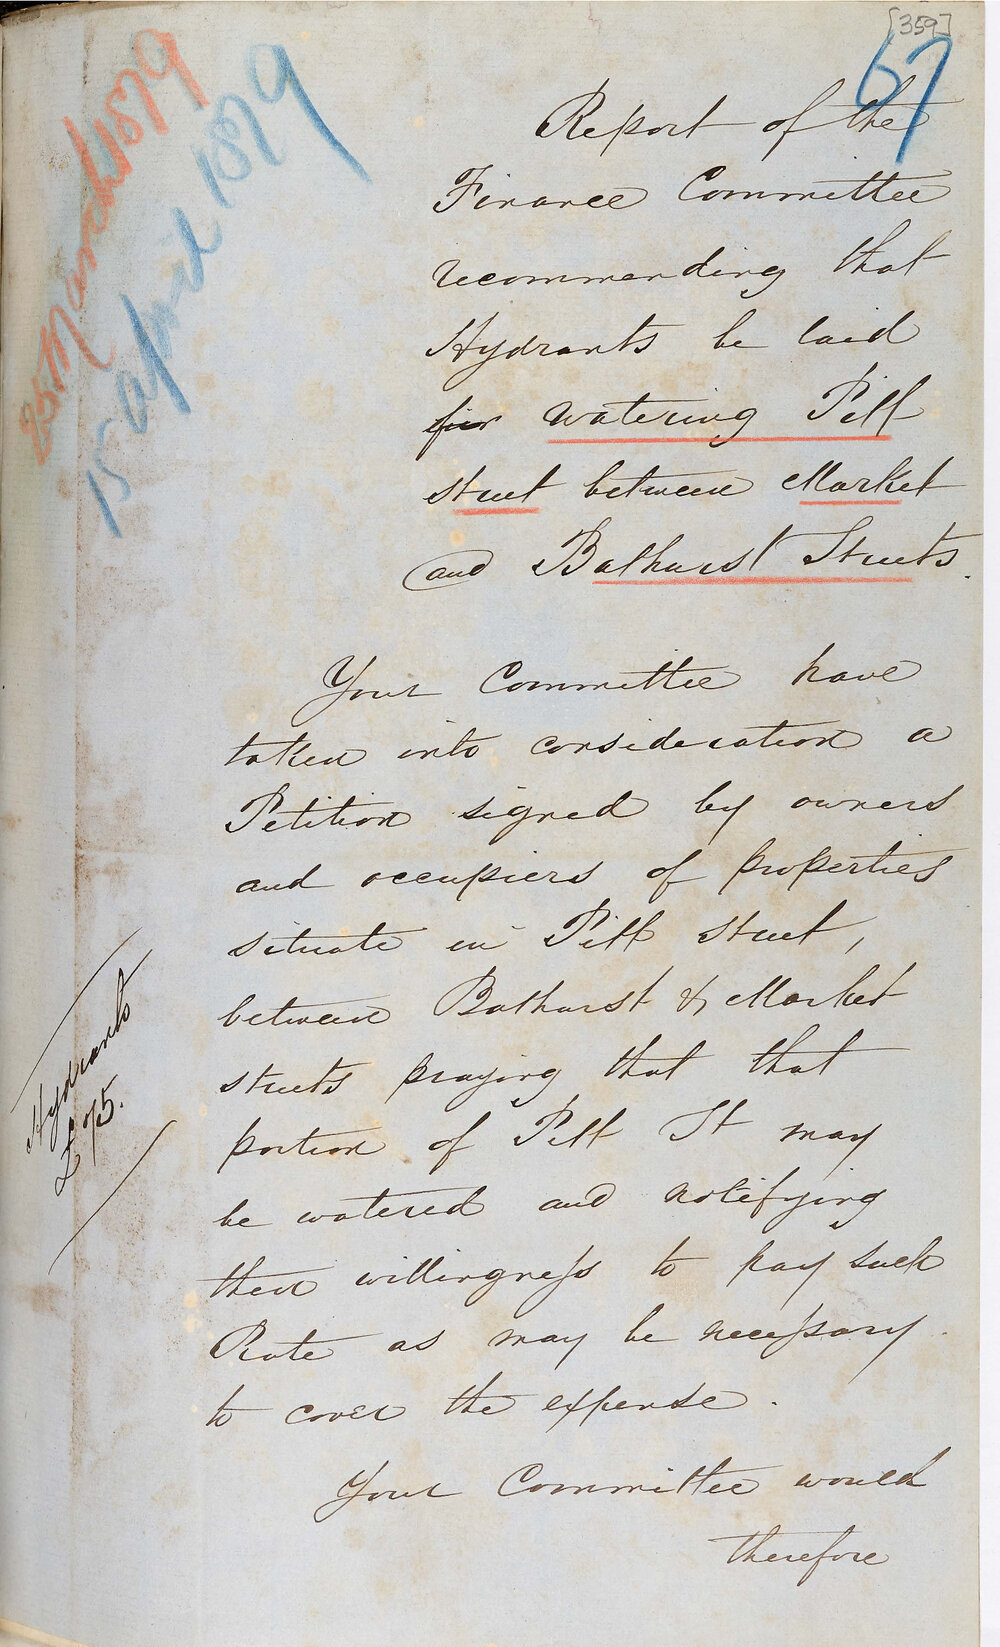 [359]
67
25th March 1879
15 April 1879
Report of the
Finance Committee
recommending that
Hydrants be laid
for watering Pitt
street between Market
and Bathurst Streets.
Your Committee have
taken into consideration a
Petition signed by owners
and occupiers of properties
situate in Pitt street,
between Bathurst & Market
streets praying that that
portion of Pitt St may
be watered and notifying
their willingness to pay such
Rate as may be necessary
to cover the expense.
Hydrants
£75.
Your Committee would
therefore